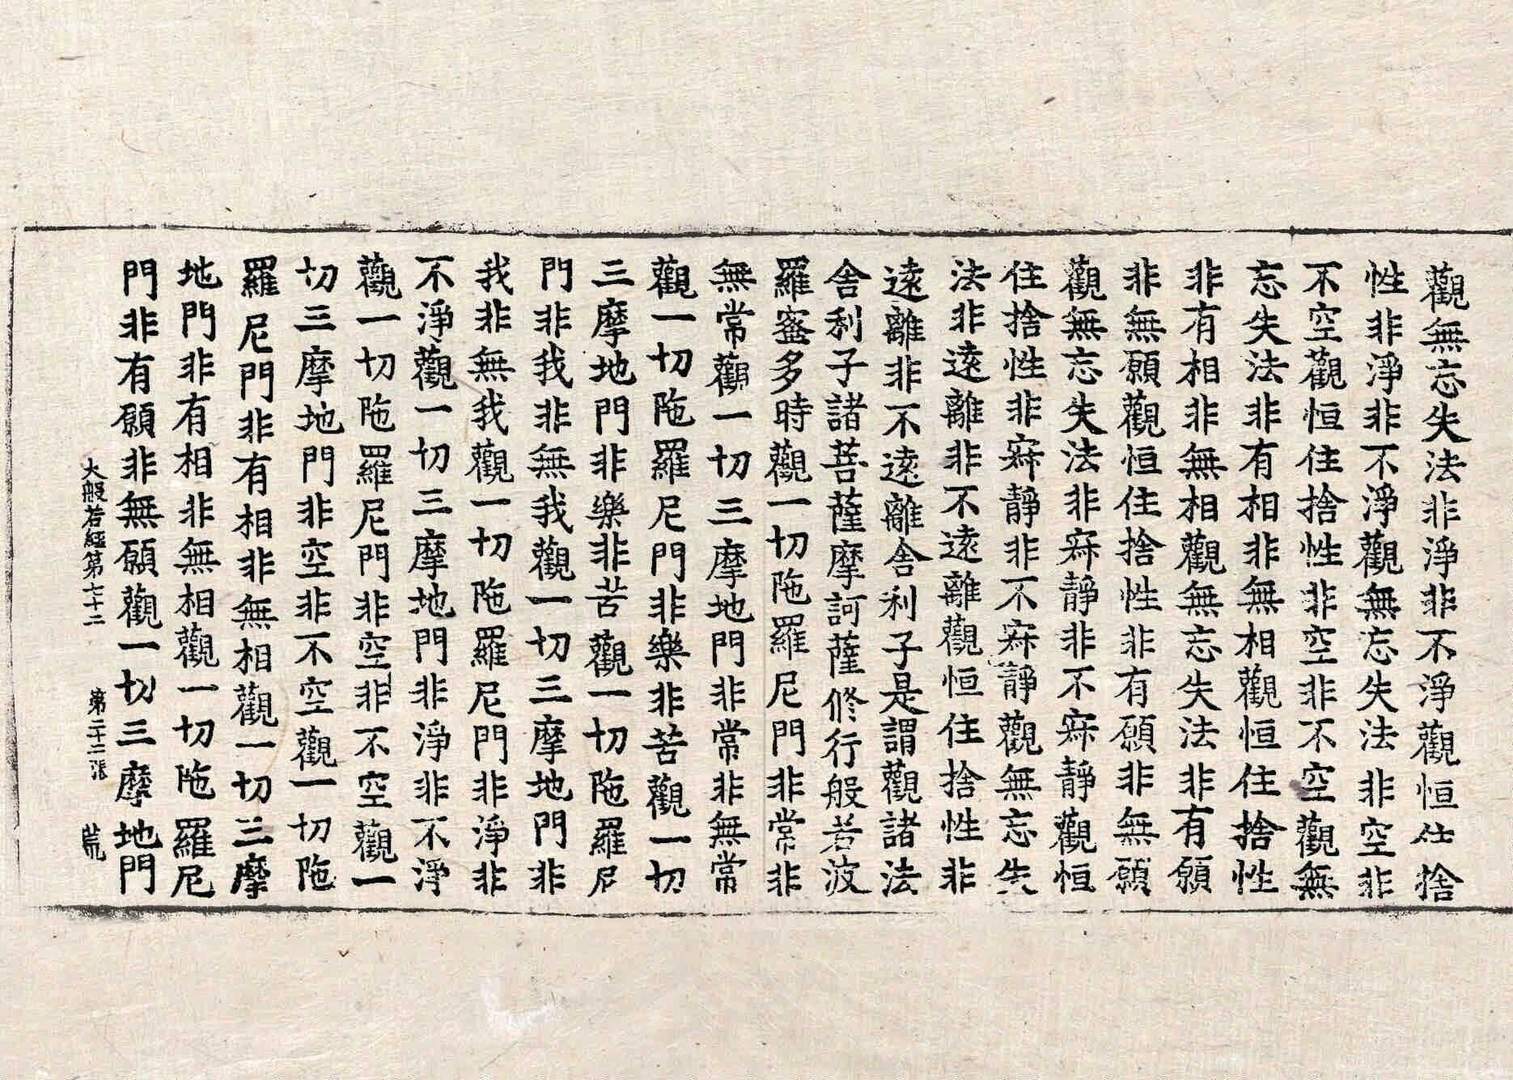 觀無忘失法非淨非不淨觀恒住捨
性非淨非不淨觀無忘失法非空非
不空觀恒住捨性非空非不空觀無
忘失法非有相非無相觀恒住捨性
非有相非無相觀無忘失法非有願
非無願觀恒住捨性非有願非無願
觀無忘失法非寂靜非不寂靜觀恒
住捨性非寂靜非不寂靜觀無忘失
法非遠離非不遠離觀恒住捨性非
遠離非不遠離舍利子是謂觀諸法
舍利子諸菩薩摩訶薩修行般若波
羅蜜多時觀一切陁羅尼門非常非
無常觀一切三摩地門非常非無常
觀一切陁羅尼門非樂非苦觀一切
三摩地門非樂非苦觀一切陁羅尼
門非我非無我觀一切三摩地門非
我非無我觀一切陁羅尼門非淨非
不淨觀一切三摩地門非淨非不淨
觀一切陁羅尼門非空非不空觀一
切三摩地門非空非不空觀一切陁
羅尼門非有相非無相觀一切三摩
地門非有相非無相觀一切陁羅尼
門非有願非無願觀一切三摩地門
大般若經第七十二 第二十二張 荒